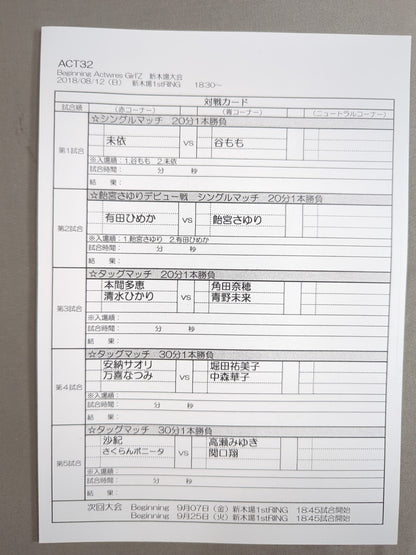 ACT32
Beginning Actwres Girl'Z 新木場大会
2018/08/12（日） 新木場1stRING 18:30～
対戦カード
試合順 （赤コーナー） （青コーナー） （ニュートラルコーナー）
☆シングルマッチ 20分1本勝負
第1試合 未依 vs 谷もも
※入場順：1.谷もも 2.未依
試合時間： 分 秒
結 果：
☆飴宮さゆりデビュー戦 シングルマッチ 20分1本勝負
第2試合 有田ひめか vs 飴宮さゆり
※入場順：1.飴宮さゆり 2.有田ひめか
試合時間： 分 秒
結 果：
☆タッグマッチ 20分1本勝負
第3試合 本間多恵 vs 角田奈穂
清水ひかり 青野未来
※入場順：
試合時間： 分 秒
結 果：
☆タッグマッチ 30分1本勝負
第4試合 安納サオリ vs 堀田祐美子
万喜なつみ 中森華子
※入場順：
試合時間： 分 秒
結 果：
☆タッグマッチ 30分1本勝負
第5試合 沙紀 vs 高瀬みゆき
さくらんボニータ 関口翔
※入場順：
試合時間： 分 秒
結 果：
次回大会 Beginning 9月07日（金）新木場1stRING 18:45試合開始
Beginning 9月25日（火）新木場1stRING 18:45試合開始